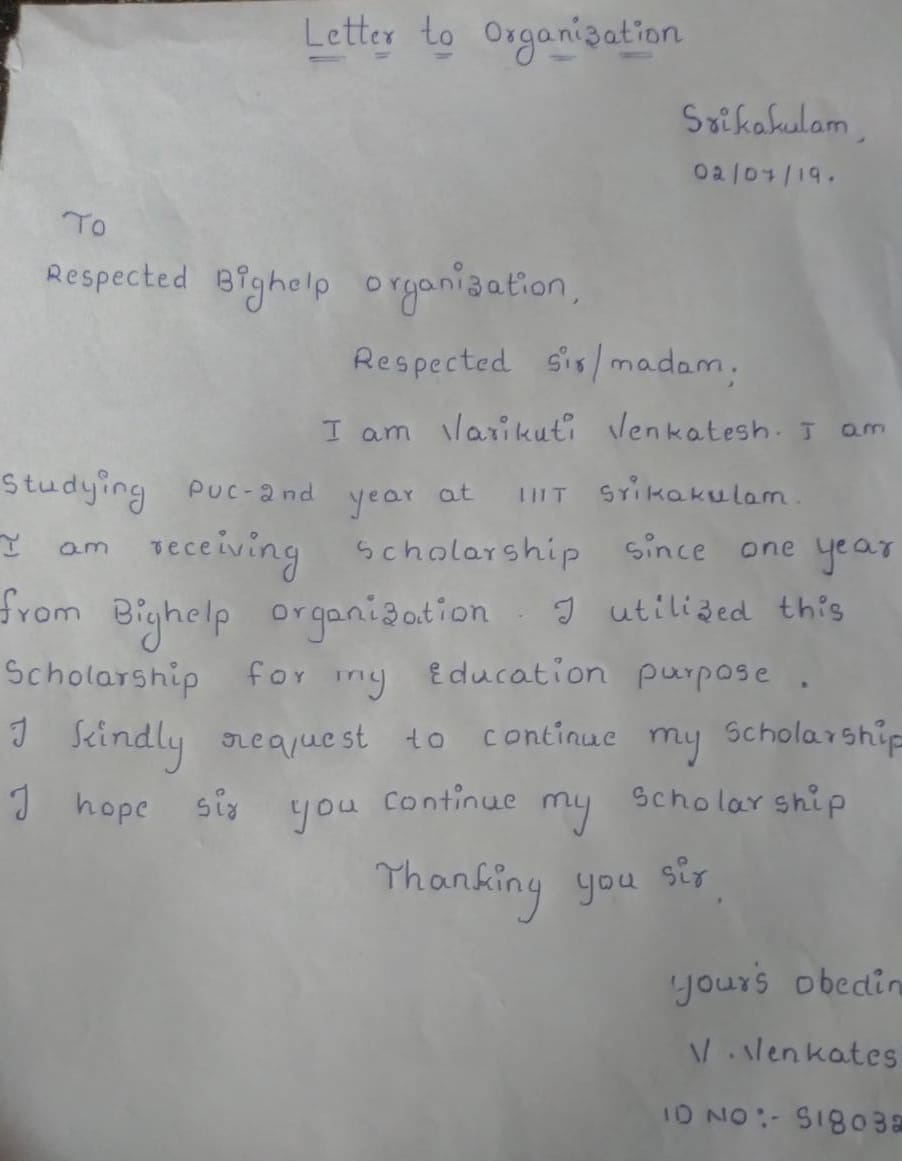 Letter to Organization
Srikakulam,
02/07/19.
To
Respected Bighelp organization,
Respected sir/madam;
I am Varikuti Venkatesh. I am
Studying PUC-2nd year at IIIT Srikakulam.
I am receiving scholarship since one year
from Bighelp organization. I utilized this
Scholarship for my Education purpose.
I kindly request to continue my Scholarship
I hope sir you continue my Scholarship
Thanking you sir,
your's obedin
V. Venkates
ID NO:- S18032